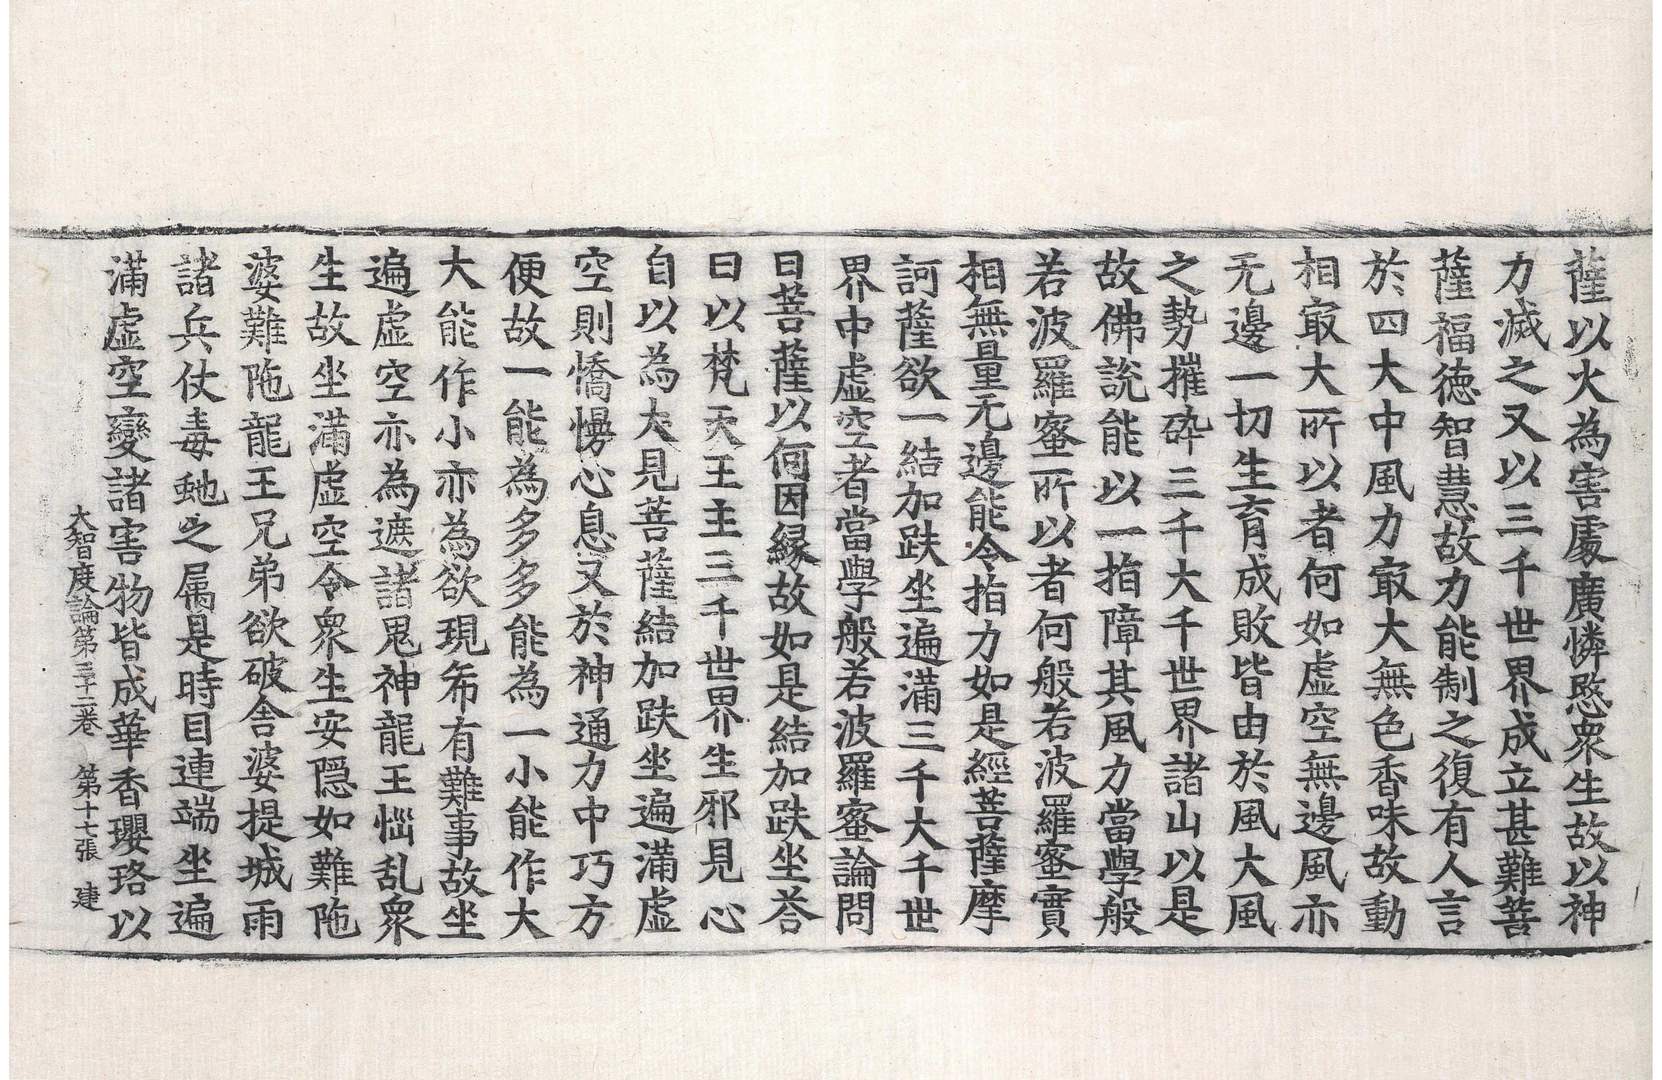 薩以火為害處廣憐愍衆生故以神
力滅之又以三千世界成立甚難菩
薩福德智慧故力能制之復有人言
於四大中風力㝡大無色香味故動
相㝡大所以者何如虛空無邊風亦
无邊一切生育成敗皆由於風大風
之勢摧碎三千大千世界諸山以是
故佛說能以一指障其風力當學般
若波羅蜜所以者何般若波羅蜜實
相無量无邊能令指力如是經菩薩摩
訶薩欲一結加趺坐遍滿三千大千世
界中虛空者當學般若波羅蜜論問
曰菩薩以何因緣故如是結加趺坐荅
曰以梵天王主三千世界生邪見心
自以為大見菩薩結加趺坐遍滿虛
空則憍慢心息又於神通力中巧方
便故一能為多多能為一小能作大
大能作小亦為欲現希有難事故坐
遍虛空亦為遮諸鬼神龍王惱乱衆
生故坐滿虛空令衆生安隱如難陁
婆難陁龍王兄弟欲破舍婆提城雨
諸兵仗毒虵之屬是時目連端坐遍
滿虛空變諸害物皆成華香瓔珞以
大智度論第三十二卷 第十七張 建